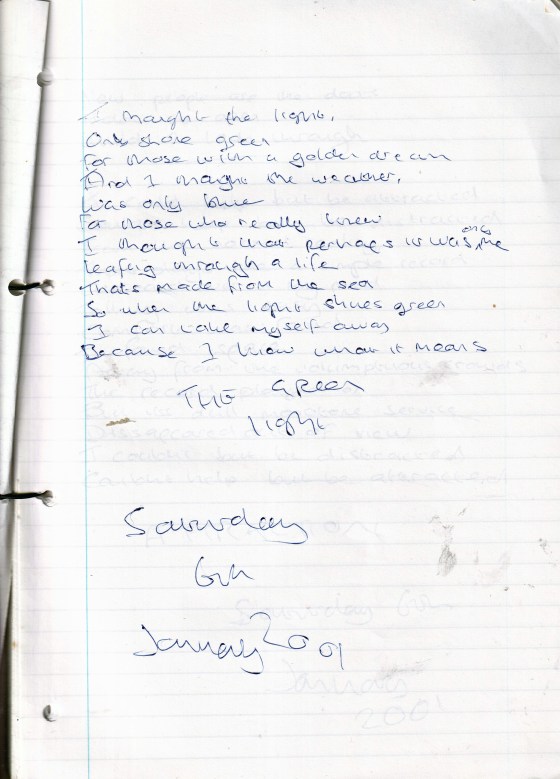 I thought the light,
Only shone green
For those with a golden dream
And I thought the weather,
Was only blue
For those who really knew
I thought that perhaps it was only me
leafing through a life
Thats made from the sea
So when the light shines green
I can take myself away
Because I know what it means
THE GREEN
light
Saturday
6th
January 2001